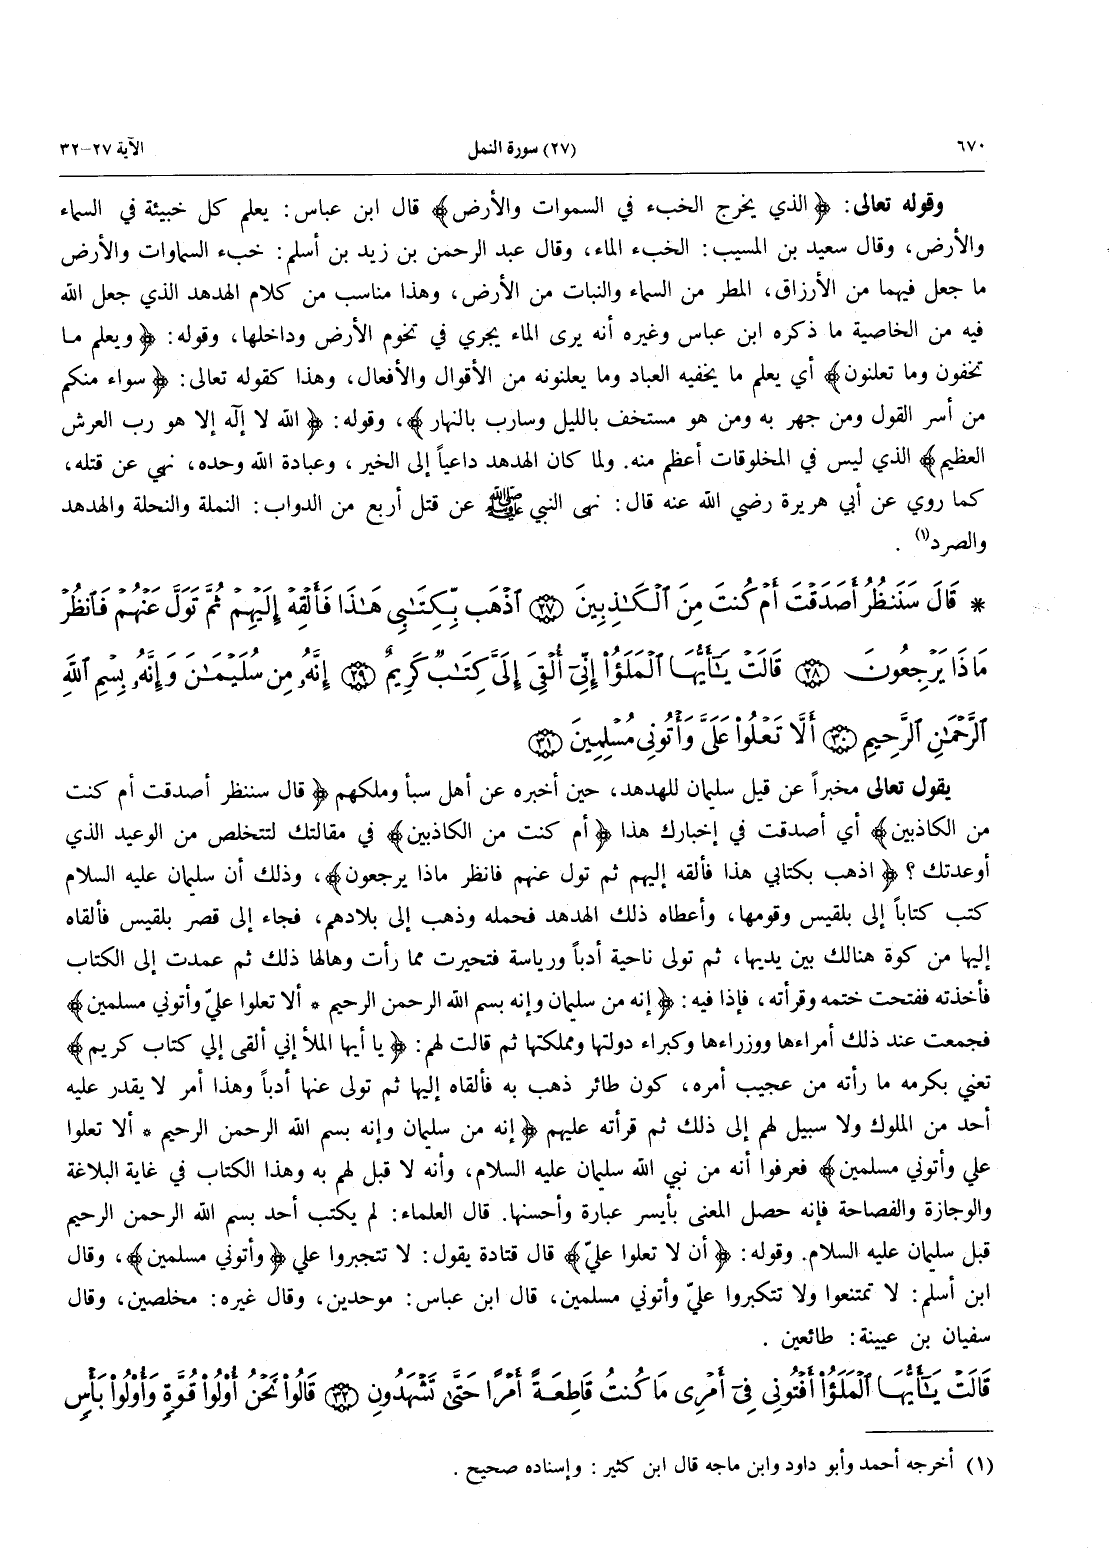 ٦٧٠ (٢٧) سورة النمل الآية ٢٧-٣٢
وقوله تعالى: ﴿ الذي يخرج الخبء في السموات والأرض﴾ قال ابن عباس: يعلم كل خبيئة في السماء
والأرض، وقال سعيد بن المسيب: الخبء الماء، وقال عبد الرحمن بن زيد بن أسلم: خبء السماوات والأرض
ما جعل فيهما من الأرزاق، المطر من السماء والنبات من الأرض، وهذا مناسب من كلام الهدهد الذي جعل الله
فيه من الخاصية ما ذكره ابن عباس وغيره أنه يرى الماء يجري في تخوم الأرض وداخلها، وقوله: ﴿ ويعلم ما
تخفون وما تعلنون﴾ أي يعلم ما يخفيه العباد وما يعلنونه من الأقوال والأفعال، وهذا كقوله تعالى: ﴿ سواء منكم
من أسر القول ومن جهر به ومن هو مستخف بالليل وسارب بالنهار ﴾، وقوله: ﴿ الله لا إلٓه إلا هو رب العرش
العظيم﴾ الذي ليس في المخلوقات أعظم منه. ولما كان الهدهد داعياً إلى الخير ، وعبادة الله وحده، نهي عن قتله،
كما روي عن أبي هريرة رضي الله عنه قال: نهى النبي ﷺ عن قتل أربع من الدواب: النملة والنحلة والهدهد
والصرد(١) .
* قَالَ سَنَنظُرُ أَصَدَقْتَ أَمْ كُنتَ مِنَ ٱلْكَـٰذِبِينَ ﴿٢٧﴾ ٱذْهَب بِّكِتَـٰبِى هَـٰذَا فَأَلْقِهْ إِلَيْهِمْ ثُمَّ تَوَلَّ عَنْهُمْ فَٱنظُرْ
مَاذَا يَرْجِعُونَ ﴿٢٨﴾ قَالَتْ يَـٰٓأَيُّهَا ٱلْمَلَؤُا۟ إِنِّىٓ أُلْقِىَ إِلَىَّ كِتَـٰبٌ كَرِيمٌ ﴿٢٩﴾ إِنَّهُۥ مِن سُلَيْمَـٰنَ وَإِنَّهُۥ بِسْمِ ٱللَّهِ
ٱلرَّحْمَـٰنِ ٱلرَّحِيمِ ﴿٣٠﴾ أَلَّا تَعْلُوا۟ عَلَىَّ وَأْتُونِى مُسْلِمِينَ ﴿٣١﴾
يقول تعالى مخبراً عن قيل سليمان للهدهد، حين أخبره عن أهل سبأ وملكهم ﴿ قال سننظر أصدقت أم كنت
من الكاذبين﴾ أي أصدقت في إخبارك هذا ﴿أم كنت من الكاذبين﴾ في مقالتك لتتخلص من الوعيد الذي
أوعدتك ؟ ﴿ اذهب بكتابي هذا فألقه إليهم ثم تول عنهم فانظر ماذا يرجعون﴾، وذلك أن سليمان عليه السلام
كتب كتاباً إلى بلقيس وقومها، وأعطاه ذلك الهدهد فحمله وذهب إلى بلادهم، فجاء إلى قصر بلقيس فألقاه
إليها من كوة هنالك بين يديها، ثم تولى ناحية أدباً ورياسة فتحيرت مما رأت وهالها ذلك ثم عمدت إلى الكتاب
فأخذته ففتحت ختمه وقرأته، فإذا فيه: ﴿ إنه من سليمان وإنه بسم الله الرحمن الرحيم * ألا تعلوا عليّ وأتوني مسلمين﴾
فجمعت عند ذلك أمراءها ووزراءها وكبراء دولتها ومملكتها ثم قالت لهم: ﴿ يا أيها الملأ إني ألقى إلي كتاب كريم ﴾
تعني بكرمه ما رأته من عجيب أمره، كون طائر ذهب به فألقاه إليها ثم تولى عنها أدباً وهذا أمر لا يقدر عليه
أحد من الملوك ولا سبيل لهم إلى ذلك ثم قرأته عليهم ﴿ إنه من سليمان وإنه بسم الله الرحمن الرحيم * ألا تعلوا
علي وأتوني مسلمين﴾ فعرفوا أنه من نبي الله سليمان عليه السلام، وأنه لا قبل لهم به وهذا الكتاب في غاية البلاغة
والوجازة والفصاحة فإنه حصل المعنى بأيسر عبارة وأحسنها. قال العلماء: لم يكتب أحد بسم الله الرحمن الرحيم
قبل سليمان عليه السلام. وقوله: ﴿ أن لا تعلوا عليّ﴾ قال قتادة يقول: لا تتجبروا علي ﴿ وأتوني مسلمين﴾، وقال
ابن أسلم: لا تمتنعوا ولا تتكبروا عليّ وأتوني مسلمين، قال ابن عباس: موحدين، وقال غيره: مخلصين، وقال
سفيان بن عيينة: طائعين .
قَالَتْ يَـٰٓأَيُّهَا ٱلْمَلَؤُا۟ أَفْتُونِى فِىٓ أَمْرِى مَا كُنتُ قَاطِعَةً أَمْرًا حَتَّىٰ تَشْهَدُونِ ﴿٣٢﴾ قَالُوا۟ نَحْنُ أُو۟لُوا۟ قُوَّةٍ وَأُو۟لُوا۟ بَأْسٍ
(١) أخرجه أحمد وأبو داود وابن ماجه قال ابن كثير : وإسناده صحيح .